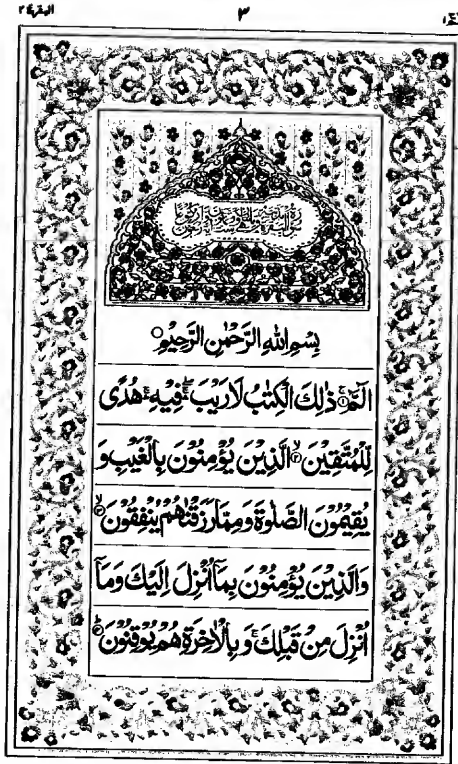 البقرة ٢
٣
بِسْمِ اللّٰهِ الرَّحْمٰنِ الرَّحِيْمِ
الٓمّٓ ۚ﴿۱﴾ ذٰلِكَ الْكِتٰبُ لَا رَيْبَ ۛۚ فِيْهِ ۛۚ هُدًى
لِّلْمُتَّقِيْنَ ۙ﴿۲﴾ الَّذِيْنَ يُؤْمِنُوْنَ بِالْغَيْبِ وَ
يُقِيْمُوْنَ الصَّلٰوةَ وَمِمَّا رَزَقْنٰهُمْ يُنْفِقُوْنَ ۙ﴿۳﴾
وَالَّذِيْنَ يُؤْمِنُوْنَ بِمَآ اُنْزِلَ اِلَيْكَ وَمَآ
اُنْزِلَ مِنْ قَبْلِكَ ۚ وَبِالْاٰخِرَةِ هُمْ يُوْقِنُوْنَ ؕ﴿۴﴾